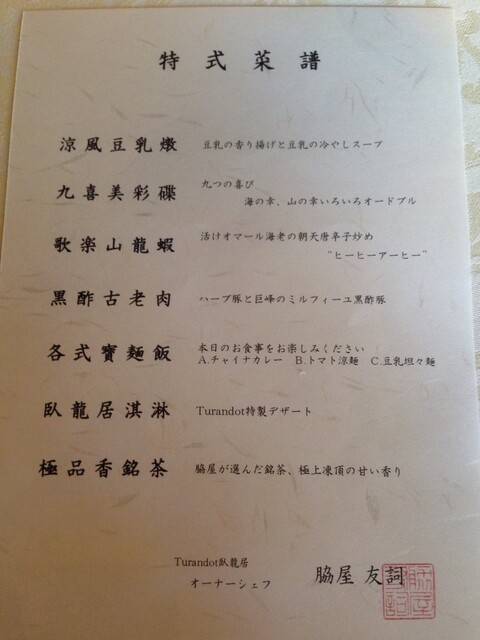 特式菜譜
涼風豆乳燉 豆乳の香り揚げと豆乳の冷やしスープ
九喜美彩碟 九つの喜び
海の幸、山の幸いろいろオードブル
歌楽山龍蝦 活けオマール海老の朝天唐辛子炒め
"ヒーヒーアーヒー"
黒酢古老肉 ハーブ豚と巨峰のミルフィーユ黒酢豚
各式寶麺飯 本日のお食事をお楽しみください
A.チャイナカレー B.トマト涼麺 C.豆乳坦々麺
臥龍居淇淋 Turandot特製デザート
極品香銘茶 脇屋が選んだ銘茶、極上凍頂の甘い香り
Turandot臥龍居
オーナーシェフ 脇屋 友詞
脇屋友詞